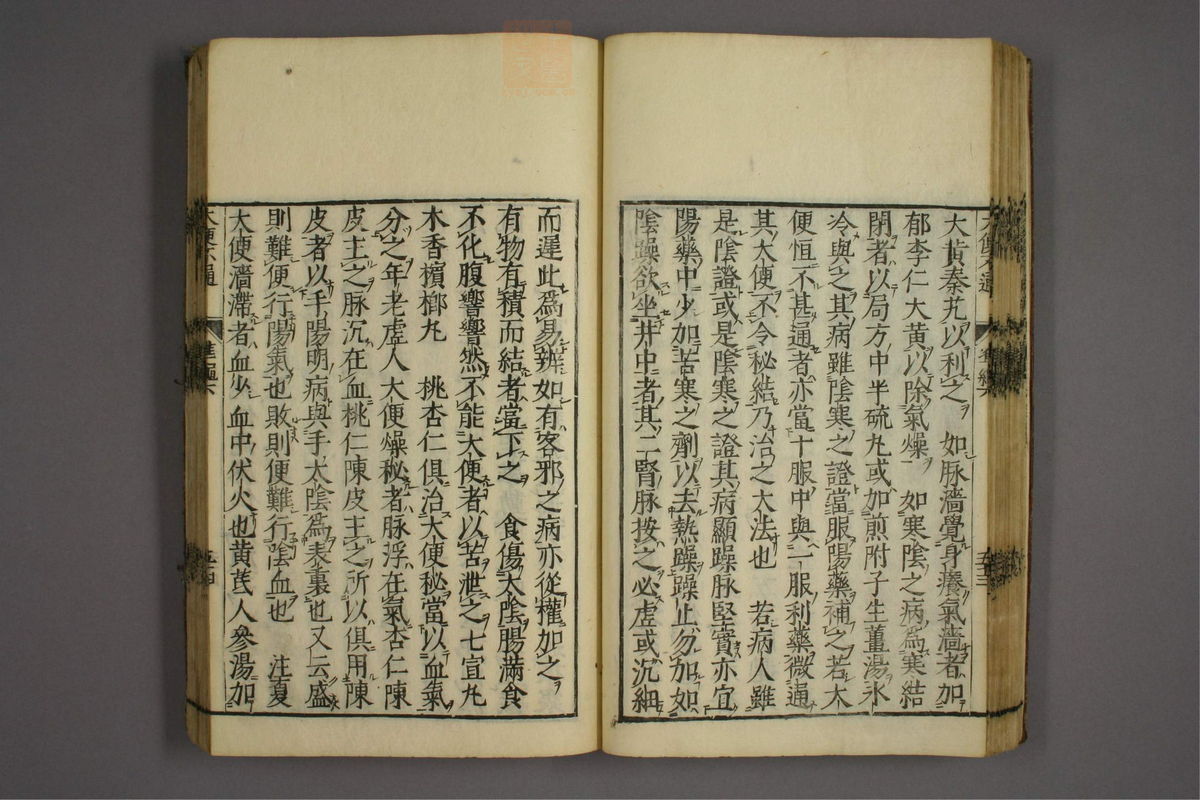 大黄秦艽以利之　如脉濇覺身癢氣濇者加
郁李仁大黄以除氣燥　如寒陰之病爲寒結
閉者以局方中半硫丸或加煎附子生薑湯氷
冷與之其病雖陰寒之證當服陽藥補之若大
便恒不甚通者亦當十服中與一服利藥微通
其大便不令秘結乃治之大法也　若病人雖
是陰證或是陰寒之證其病顯躁脉堅實亦宜
陽藥中少加苦寒之劑以去熱躁躁止勿加如
陰躁欲坐井中者其二腎脉按之必虚或沉細
而遲此爲易辨如有客邪之病亦從權加之
有物有積而結者當下之　食傷太陰腸滿食
不化腹響響然不能大便者以苦泄之七宣丸
木香檳榔丸　桃杏仁俱治大便秘當以血氣
分之年老虚人大便燥秘者脉浮在氣杏仁陳
皮主之脉沉在血桃仁陳皮主之所以俱用陳
皮者以手陽明病與手太陰爲表裏也又云盛
則難便行陽氣也敗則便難行陰血也　注夏
大便濇滯者血少血中伏火也黄芪人參湯加
大便不通